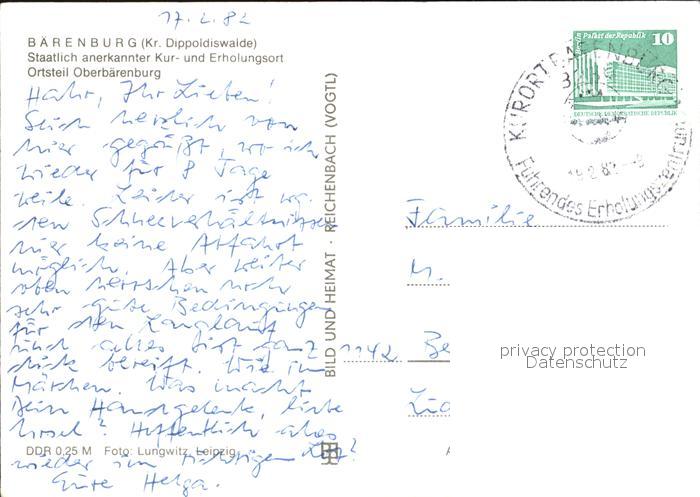 17.2.82
BÄRENBURG (Kr. Dippoldiswalde)
Staatlich anerkannter Kur- und Erholungsort
Ortsteil Oberbärenburg
Ihr Lieben!
Seid herzlich von
hier gegrüßt, wo ich
wieder für 8 Tage
weile. Leider ist wg.
den Schneeverhältnissen
hier keine Abfahrt
möglich. Aber weiter
oben herrschen noch
sehr gute Bedingungen
für den Langlauf
und alles ist ganz
dick bereift. Wie im
Märchen. Was macht
Dein Handgelenk, liebe
Ursel? Hoffentlich alles
wieder im richtigen
Eure Helga.
DDR 0,25 M Foto: Lungwitz, Leipzig
BILD UND HEIMAT · REICHENBACH (VOGTL)
Berlin, Palast der Republik 10
DEUTSCHE DEMOKRATISCHE REPUBLIK
KURORT BÄRENBURG
Führendes Erholungszentrum
Familie
M.
1142 Be
privacy protection
Datenschutz